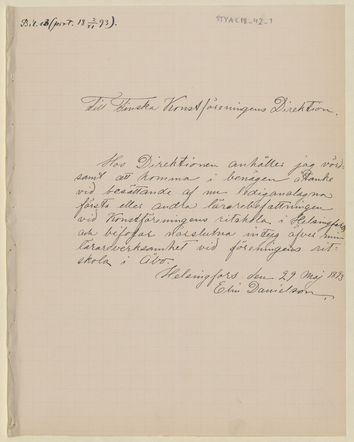 Bil. 13 (prot. 18 2/XI 93).
STYAC18-42-1
Till Finska Konstföreningens Direktion.
Hos Direktionen anhåller jag vörd-
samt att komma i benägen åtanke
vid besättande af nu lediganslagna
första eller andra lärarebefattningen
vid Konstföreningens ritskola i Helsingfors
och bifogar närslutna intyg öfver min
lärareverksamhet vid föreningens rit-
skola i Åbo.
Helsingfors den 29 Maj 1893
Elin Danielson.